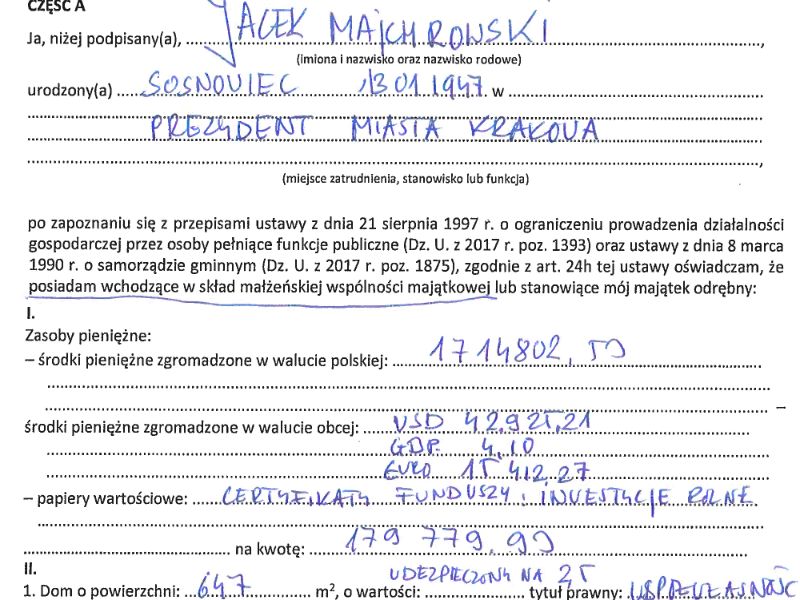 CZĘŚĆ A
Ja, niżej podpisany(a), JACEK MAJCHROWSKI,
(imiona i nazwisko oraz nazwisko rodowe)
urodzony(a) SOSNOWIEC 13 01 1947 w
PREZYDENT MIASTA KRAKOWA
,
(miejsce zatrudnienia, stanowisko lub funkcja)
po zapoznaniu się z przepisami ustawy z dnia 21 sierpnia 1997 r. o ograniczeniu prowadzenia działalności
gospodarczej przez osoby pełniące funkcje publiczne (Dz. U. z 2017 r. poz. 1393) oraz ustawy z dnia 8 marca
1990 r. o samorządzie gminnym (Dz. U. z 2017 r. poz. 1875), zgodnie z art. 24h tej ustawy oświadczam, że
posiadam wchodzące w skład małżeńskiej wspólności majątkowej lub stanowiące mój majątek odrębny:
I.
Zasoby pieniężne:
– środki pieniężne zgromadzone w walucie polskiej: 1714802,59
–
środki pieniężne zgromadzone w walucie obcej: USD 42.925,21
GBP. 4,10
EURO 15 412,27
– papiery wartościowe: CERTYFIKATY FUNDUSZY i INVESTYCJE ROLNE
na kwotę: 179 779.99
II.
UBEZPIECZONY NA 25
1. Dom o powierzchni: 647 m², o wartości: tytuł prawny: